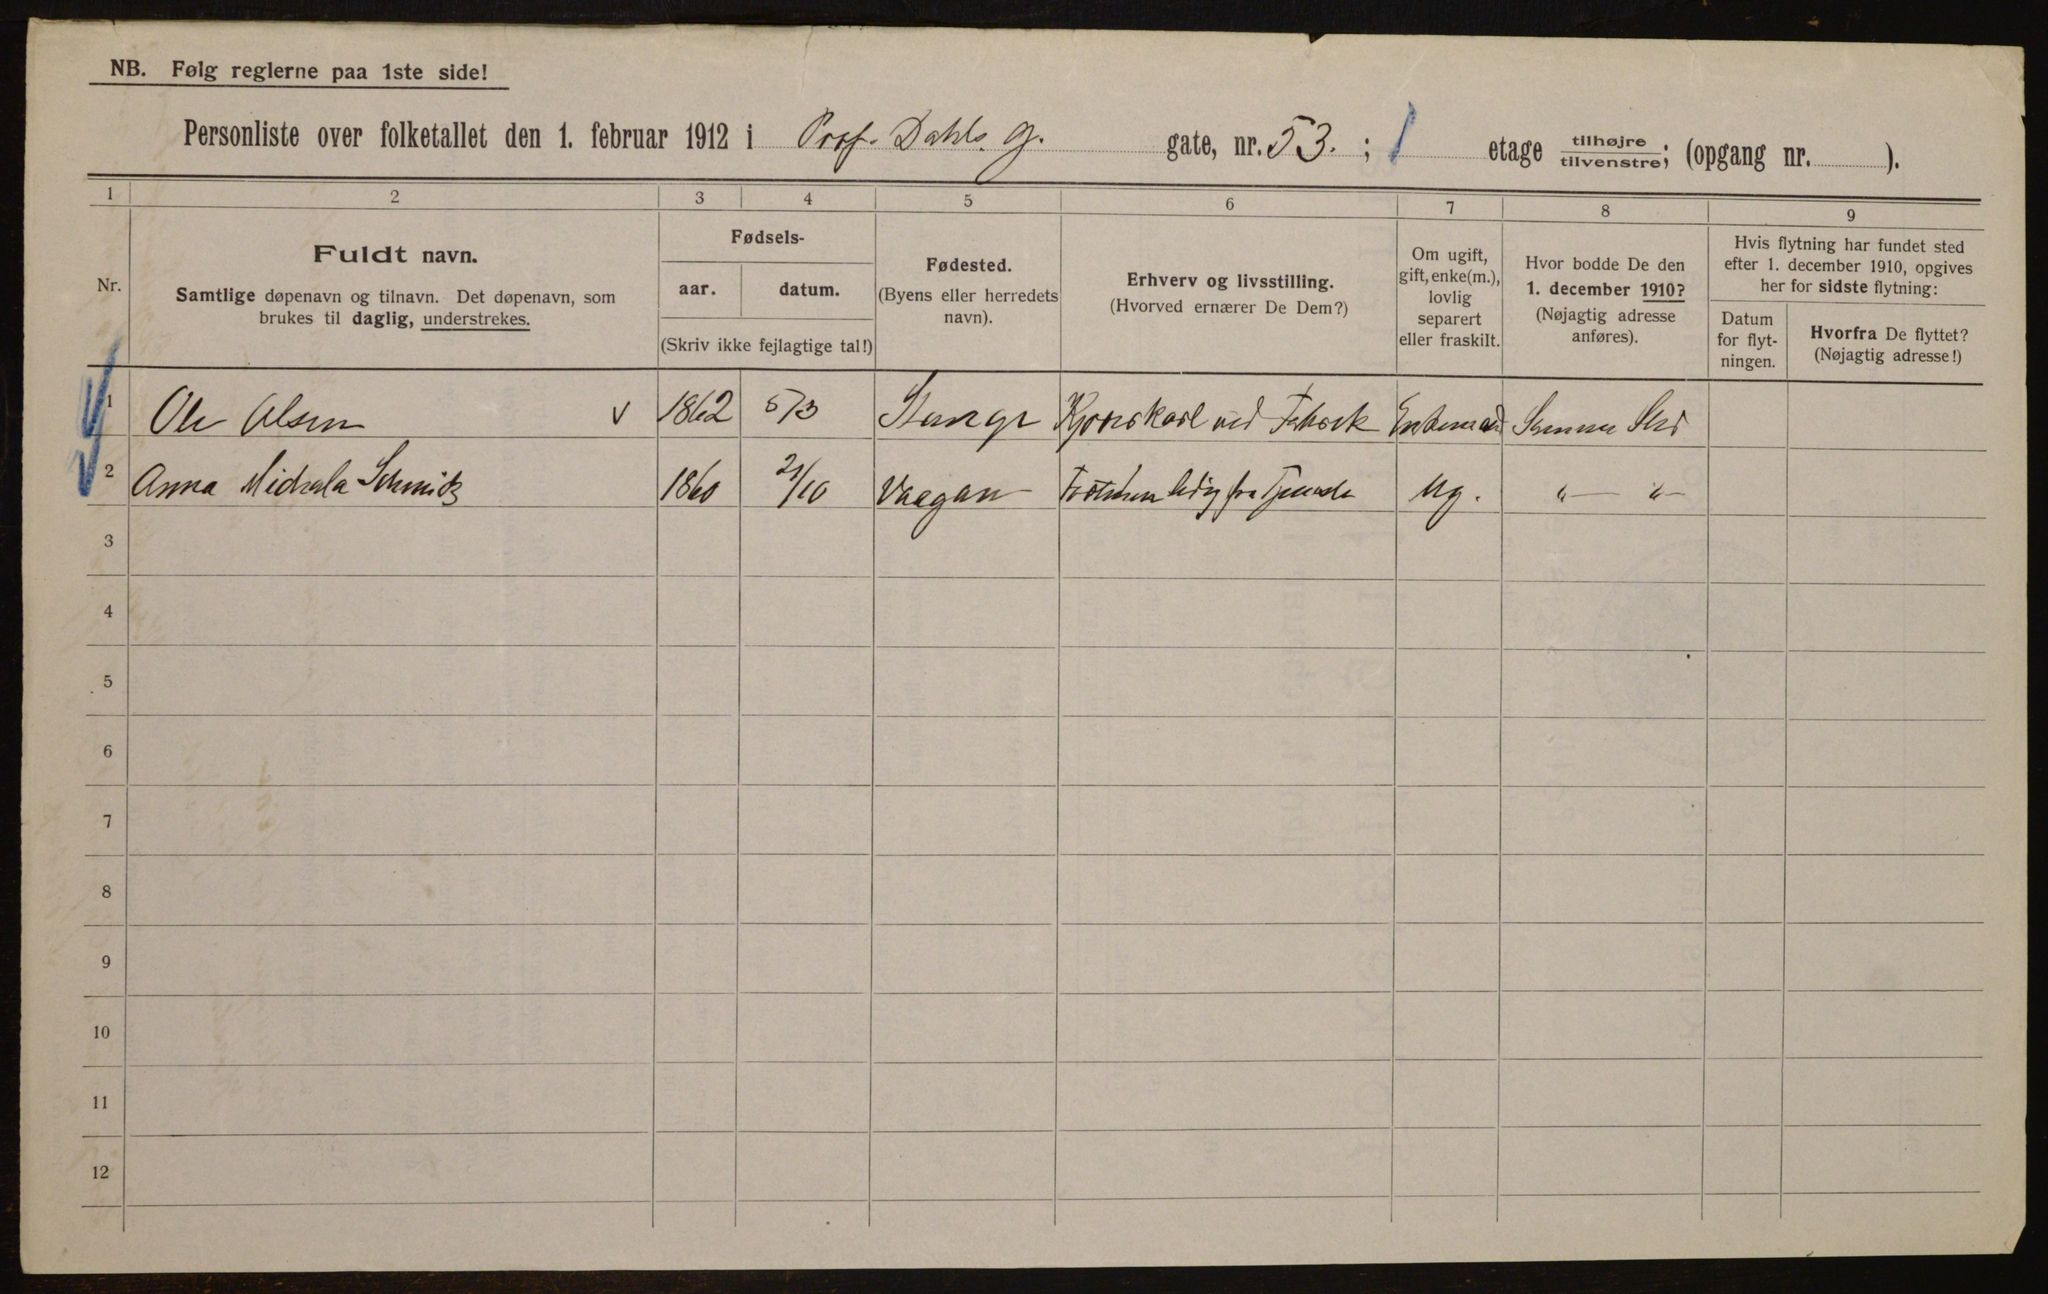 NB. Følg reglerne paa 1ste side!
Personliste over folketallet den 1. februar 1912 i Prof. Dahls. g. gate, nr. 53. ; 1 etage tilhøjre/tilvenstre; (opgang nr. ).
1 2 3 4 5 6 7 8 9
Nr.
Fuldt navn.
Samtlige døpenavn og tilnavn. Det døpenavn, som
brukes til daglig, understrekes.
Fødsels-
aar. datum.
(Skriv ikke fejlagtige tal!)
Fødested.
(Byens eller herredets
navn).
Erhverv og livsstilling.
(Hvorved ernærer De Dem?)
Om ugift,
gift, enke(m.),
lovlig
separert
eller fraskilt.
Hvor bodde De den
1. december 1910?
(Nøjagtig adresse
anføres).
Hvis flytning har fundet sted
efter 1. december 1910, opgives
her for sidste flytning:
Datum
for flyt-
ningen.
Hvorfra De flyttet?
(Nøjagtig adresse!)
1 Ole Olsen v 1862 5/3 Stange Kjørekarl ved Fabrik Enkemand Samme Sted
2 Anna Schmidt 1860 2/10 Vaagan ledig fra Ug. " — " —
3
4
5
6
7
8
9
10
11
12